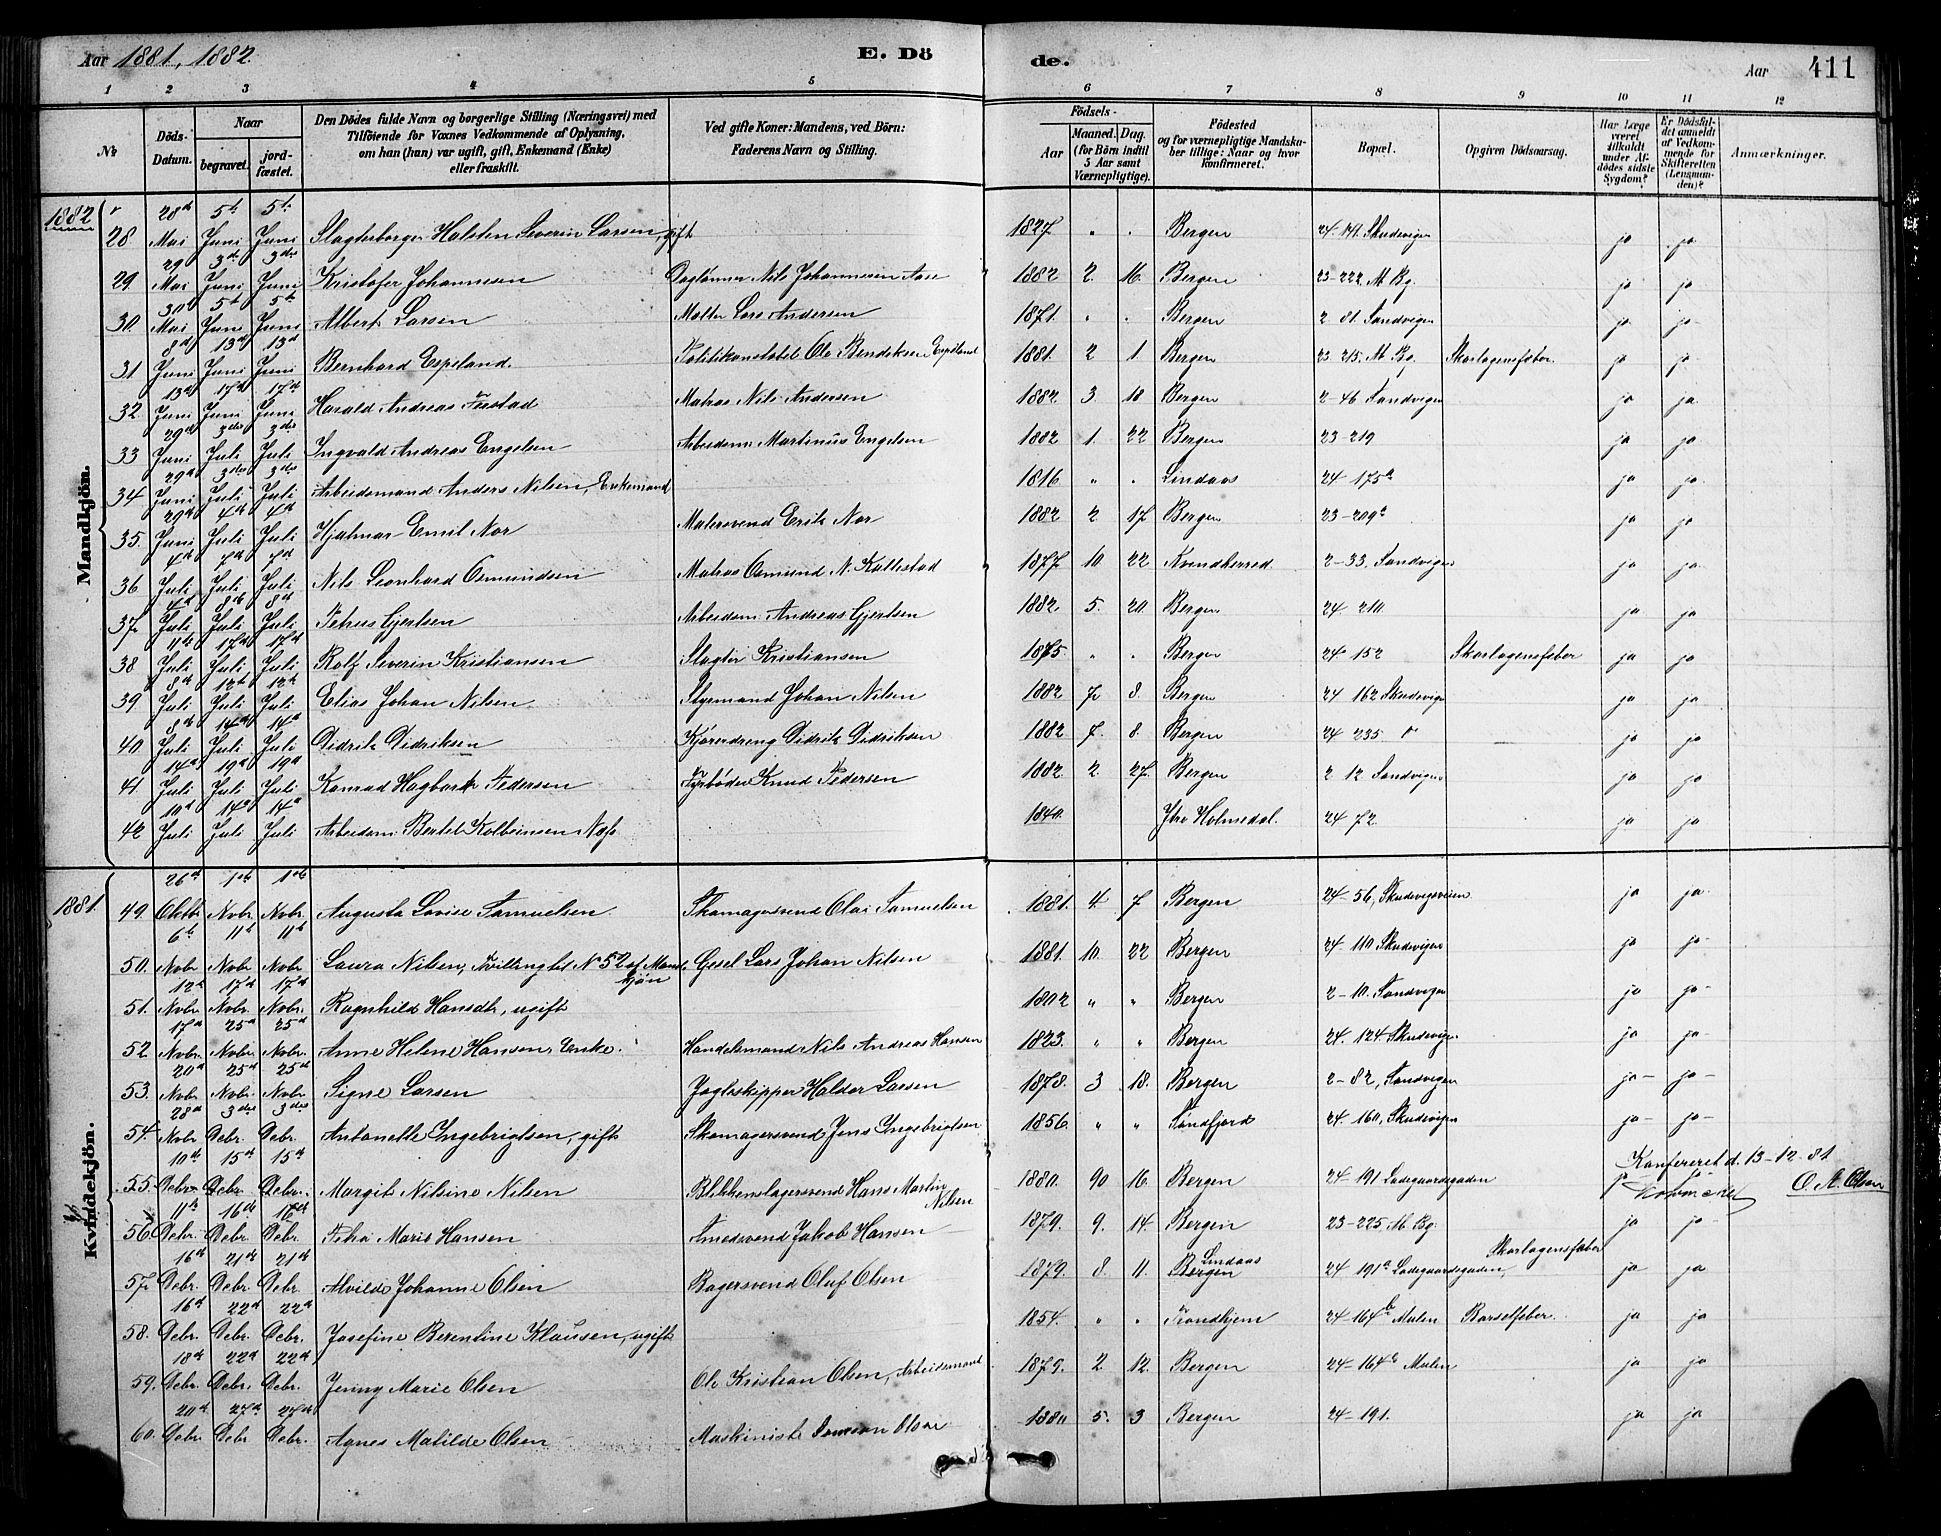 Aar 1881, 1882. E. Dö de. Aar 411
1 2 3 4 5 6 7 8 9 10 11 12
No Döds-Datum. Naar begravet. jord-fæstet. Den Dödes fulde Navn og borgerlige Stilling (Næringsvei) med Tilföiende for Voxnes Vedkommende af Oplysning, om han (hun) var ugift, gift, Enkemand (Enke) eller fraskilt. Ved gifte Koner: Mandens, ved Börn: Faderens Navn og Stilling. Födsels- Aar Maaned. Dag. (for Börn indtil 5 Aar samt Værnepligtige). Födested og for værnepligtige Mandska-ber tillige: Naar og hvor konfirmeret. Bopæl. Opgiven Dödsaarsag. Har Læge været tilkaldt under Af-dödes sidste Sygdom? Er Dödsfal-det anmeldt af Vedkom-mende for Skifteretten (Lensman-den)? Anmærkninger.
Mandkjön.
1882 28 28d Mai 5t Juni 5t Juni Slagterborger Halsten Severin Larsen, gift 1827 " " Bergen 24. 141 Skudevigen ja ja
29. 29 Mai 3d Juni 3d Juni Kristofer Johannesen Daglönner Nils Johannesen Aase 1882 2. 16. Bergen 23-222. M. Bg. ja ja
30. 30t Mai 5t Juni 5t Juni Albert Larsen Malter Lars Andersen 1871. " " Bergen 2 81. Sandvigen ja ja
31 8d Juni 13d Juni 13d Juni Bernhard Espeland. Politikonstabel Ole Bendiksen Espeland 1881. 2 1. Bergen 23 215. M. Bg. Skarlagensfeber ja ja
32. 13d Juni 17d Juni 17d Juni Harald Andreas Matros Nils Andersen 1882 3 18 Bergen 2-46 Sandvigen ja ja
33 29d Juni 3die Juli 3die Juli Ingvald Andreas Engelsen Arbeidsm: Martinus Engelsen 1882 1. 22 Bergen 23-219 ja ja
34 29d Juni 3die Juli 3die Juli Arbeidsmand Anders Nilsen, Enkemand 1816 " " Lindaas 24 175a ja ja
35. 29d Juni 4d Juli 4d Juli Hjalmar Emil Nor Malersvend Erik Nor 1882 2 17 Bergen 23-209a ja ja
36 4d Juli 7d Juli 7d Juli Nils Leonhard Osmundsen Matros Osmund N. Kallestad 1877 10 22 Kvindherred 2-33. Sandvigen ja ja
37 4d Juli 8d Juli 8d Juli Petrus Gjertsen Arbeidsm: Andreas Gjertsen 1882. 5. 20. Bergen 24 210 ja ja
38 11te Juli 17d Juli 17d Juli Rolf Severin Kristiansen Slagter Kristiansen 1875. " " Bergen 24. 152 Skarlagensfeber ja ja
39 8d Juli 12t Juli 12t Juli Elias Johan Nilsen Styrmand Johan Nilsen 1882 7 8. Bergen 24 162 Skudevigen ja ja
40 8d Juli 14d Juli 14d Juli Didrik Didriksen Kjøredreng Didrik Didriksen 1882 7. 8. Bergen 24 235 ja ja
41 14d Juli 19d Juli 19d Juli Konrad Hagbart Pedersen Fyrbøder Knud Pedersen 1882 2. 27. Bergen 2 12 Sandvigen ja ja
42 10d Juli 14d Juli 14d Juli Arbeidsm: Bertel Kolbeinsen Næs 1840. Ytre Holmedal. 24 72. ja ja
Kvindekjön.
1881. 49. 26d Oktbr 1ste Novbr 1ste Novbr. Augusta Lovise Samuelsen. Skomagersvend Olai Samuelsen 1881. 4. 7 Bergen 24-56, Skudevigsveien ja ja
50. 6te Novbr. 11t Novbr. 11t Novbr. Laura Nilsen, Tvilling til N 52 af Mand-kjøn Gesel Lars Johan Nilsen 1881. 10. 22 Bergen 24-110 Skudevigen ja ja
51. 12t Novbr. 17d Novbr. 17d Novbr. Ragnhild Hansdtr, ugift 1802 " " Bergen 2-10. Sandvigen ja ja
52 17d Novbr. 25d Novbr. 25d Novbr. Anne Helene Hansen, Enke. Handelsmand Nils Andreas Hansen 1823. " " Bergen 24. 124 Skudevigen ja ja
53. 20d Novbr. 25d Novbr. 25d Novbr. Signe Larsen Jagtskipper Haldor Larsen 1878. 3 18. Bergen 2-82, Sandvigen ja ja
54. 28d Novbr 3die Debr. 3die Debr. Antonette Ingebrigtsen, gift Skomagersvend Jens Ingebrigtsen 1856. " " Søndfjord 24. 160, Skudevigen ja ja
55. 10de Debr. 15d Debr. 15d Debr. Margit Nilsine Nilsen Blikkenslagersvend Hans Martin Nilsen 1880. 16. Bergen 24-191 Ladegaardsgaden ja Konfereret d. 13-12-81 O. A. Olsen
56. 11te Debr. 16de Debr. 16de Debr. Marie Hansen Smedsvend Jakob Hansen 1879. 9. 14. Bergen 23-225. M. Bg. ja ja
57 16d Debr. 21d Debr. 21d Debr. Alvilde Johanne Olsen Bagersvend Oluf Olsen 1879. 8. 11. Lindaas Bergen 24 191a Ladegaardsgaden, Skarlagensfeber ja ja
58. 16d Debr. 22d Debr. 22d Debr. Josefine Berentine Klausen, ugift 1854. " " Trondhjem 24-164b Mulen Barselfeber. ja ja
59. 18d Debr. 22d Debr. 22d Debr. Jenny Marie Olsen Ole Kristian Olsen, Arbeidsmand 1879. 2. 12. Bergen 24-164b Mulen ja ja
60. 20d Debr. 27d Debr. 27d Debr. Agnes Matilde Olsen Maskinist Olsen 1880 5. 3 Bergen 24-191. ja ja